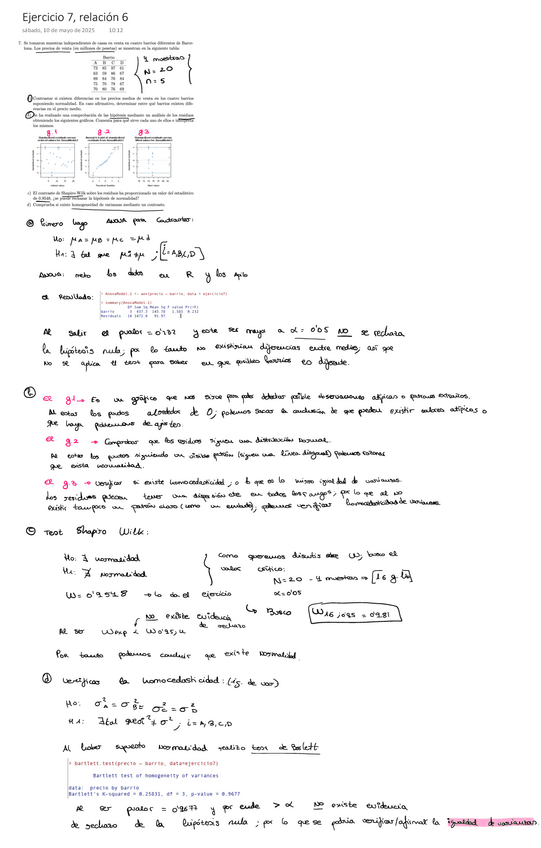 Ejercicio 7, relación 6
sábado, 10 de mayo de 2025 10:12
7. Se tomaron muestras independientes de casas en venta en cuatro barrios diferentes de Barcelona. Los precios de venta (en millones de pesetas) se muestran en la siguiente tabla:
Barrio
A B C D
4 muestras
N = 20
n = 5
a) Contrastar si existen diferencias en los precios medios de venta en los cuatro barrios
suponiendo normalidad. En caso afirmativo, determinar entre qué barrios existen diferencias en el precio medio.
b) Se ha realizado una comprobación de las hipótesis mediante un análisis de los residuos
obteniendo los siguientes gráficos. Comenta para qué sirve cada uno de ellos e interpreta
los mismos.
g.1 g.2 g.3
c) El contraste de Shapiro-Wilk sobre los residuos ha proporcionado un valor del estadístico
¿se puede rechazar la hipótesis de normalidad?
d) Comprueba si existe homogeneidad de varianzas mediante un contraste.
a) Primero hago ANOVA para contrastar:
H0: μA = μB = μC = μd
H1: ∃ tal que μi ≠ μ ; [i = A,B,C,D]
ANOVA: meto los datos en R y los
el Resultado:
> summary(AnovaModel.1)
Df Sum Sq Mean Sq F value Pr(>F)
barrio 3
Residuals 16
Al salir el pvalor = 0'232 y este ser mayor a α = 0'05 NO se rechaza
la hipótesis nula; por lo tanto no existirían diferencias entre medias, así que
no se aplica el test para saber en que posibles barrios es diferente.
b) el g1 → Es un gráfico que nos sirve para poder detectar posible observaciones atípicas o patrones extraños.
Al estar los puntos alrededor de 0; podemos sacar la conclusión de que pueden existir valores atípicos o
que haya problemas de ajustes.
el g2 → Comprobar que los residuos siguen una distribución normal.
Al estar los puntos siguiendo un patrón (siguen una línea diagonal) podemos
que exista normalidad.
el g3 → verificar si existe homocedasticidad; o lo que es lo mismo igualdad de varianzas.
Los residuos parecen tener una dispersión cte en todos los rangos, por lo que al no
existir tampoco un patrón claro (como un embudo), podemos verificar homocedasticidad de varianzas
c) Test Shapiro Wilk:
H0: ∃ normalidad
H1: ∄ normalidad
como queremos discutir sobre W, busco el
valor crítico:
N = 20 - 4 muestras ⇒ [16 g.l.]
α = 0'05
W = 0'9518 → lo da el ejercicio
↳ Busco W16, 0'95 = 0'981
NO existe evidencia
de rechazo
Al ser Wexp < W0'95,n
Por tanto podemos concluir que existe normalidad.
d) verificar la homocedasticidad: (ig. de var)
H0: σ²A = σ²B = σ²C = σ²D
H1: ∃ tal que σi² ≠ σ² ; i = A,B,C,D
Al haber supuesto normalidad realizo test de Barlett
> bartlett.test(precio ~ barrio, data=ejercicio7)
Bartlett test of homogeneity of variances
data: precio by barrio
Bartlett's K-squared = 0.25831, df = 3, p-value = 0.9677
Al ser pvalor = 0'9677 y por ende > α NO existe evidencia
de rechazo de la hipótesis nula; por lo que se podría verificar/afirmar la igualdad de varianzas.